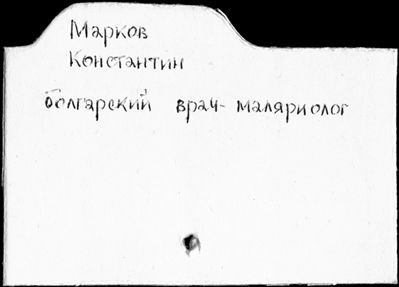 Марков
Константин
болгарский врач- маляриолог